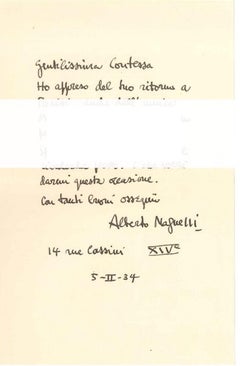 Gentilissima Contessa
Ho appreso del tuo ritorno a
darmi questa occasione.
Con tanti buoni ossequi
Alberto Magnelli
14 rue Cassini XIVe
5-II-34